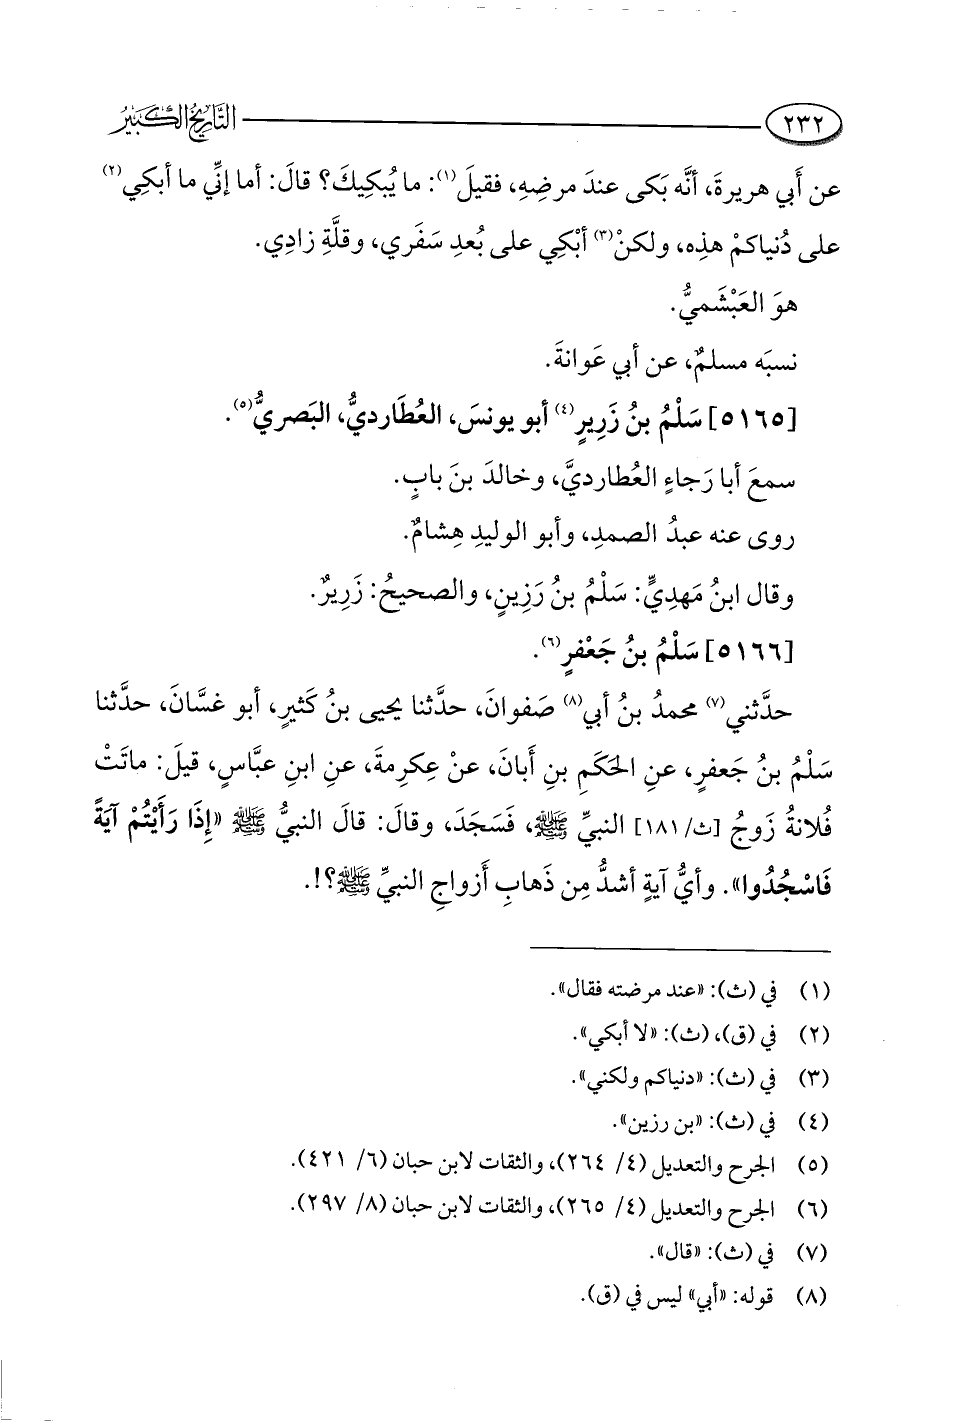 ٢٣٢ التَّارِيخُ الكَبِيرُ
عن أَبي هريرةَ، أنَّه بَكى عندَ مرضِهِ، فقيلَ(١): ما يُبكِيكَ؟ قالَ: أما إنِّي ما أبكِي(٢)
على دُنياكمْ هذِه، ولكنْ(٣) أبْكِي على بُعدِ سَفَري، وقلَّةِ زادِي.
هوَ العَبْشَميُّ.
نسبَه مسلمٌ، عن أبي عَوانةَ.
[٥١٦٥] سَلْمُ بنُ زَرِيرٍ(٤) أبو يونسَ، العُطَارديُّ، البَصريُّ(٥).
سمعَ أبا رَجاءٍ العُطارديَّ، وخالدَ بنَ بابٍ.
روى عنه عبدُ الصمدِ، وأبو الوليدِ هِشامٌ.
وقال ابنُ مَهديٍّ: سَلْمُ بنُ رَزِينٍ، والصحيحُ: زَرِيرٌ.
[٥١٦٦] سَلْمُ بنُ جَعْفرٍ(٦).
حدَّثني(٧) محمدُ بنُ أبي(٨) صَفوانَ، حدَّثنا يحيى بنُ كَثيرٍ، أبو غسَّانَ، حدَّثنا
سَلْمُ بنُ جَعفرٍ، عنِ الحَكَمِ بنِ أَبانَ، عنْ عِكرِمةَ، عنِ ابنِ عبَّاسٍ، قيلَ: ماتَتْ
فُلانةُ زَوجُ [ث/١٨١] النبيِّ ﷺ، فَسَجَدَ، وقالَ: قالَ النبيُّ ﷺ «إِذَا رَأَيْتُمْ آيَةً
فَاسْجُدُوا». وأيُّ آيةٍ أشدُّ مِن ذَهابِ أزواجِ النبيِّ ﷺ؟!.
(١) في (ث): «عند مرضته فقال».
(٢) في (ق)، (ث): «لا أبكي».
(٣) في (ث): «دنياكم ولكني».
(٤) في (ث): «بن رزين».
(٥) الجرح والتعديل (٤/ ٢٦٤)، والثقات لابن حبان (٦/ ٤٢١).
(٦) الجرح والتعديل (٤/ ٢٦٥)، والثقات لابن حبان (٨/ ٢٩٧).
(٧) في (ث): «قال».
(٨) قوله: «أبي» ليس في (ق).